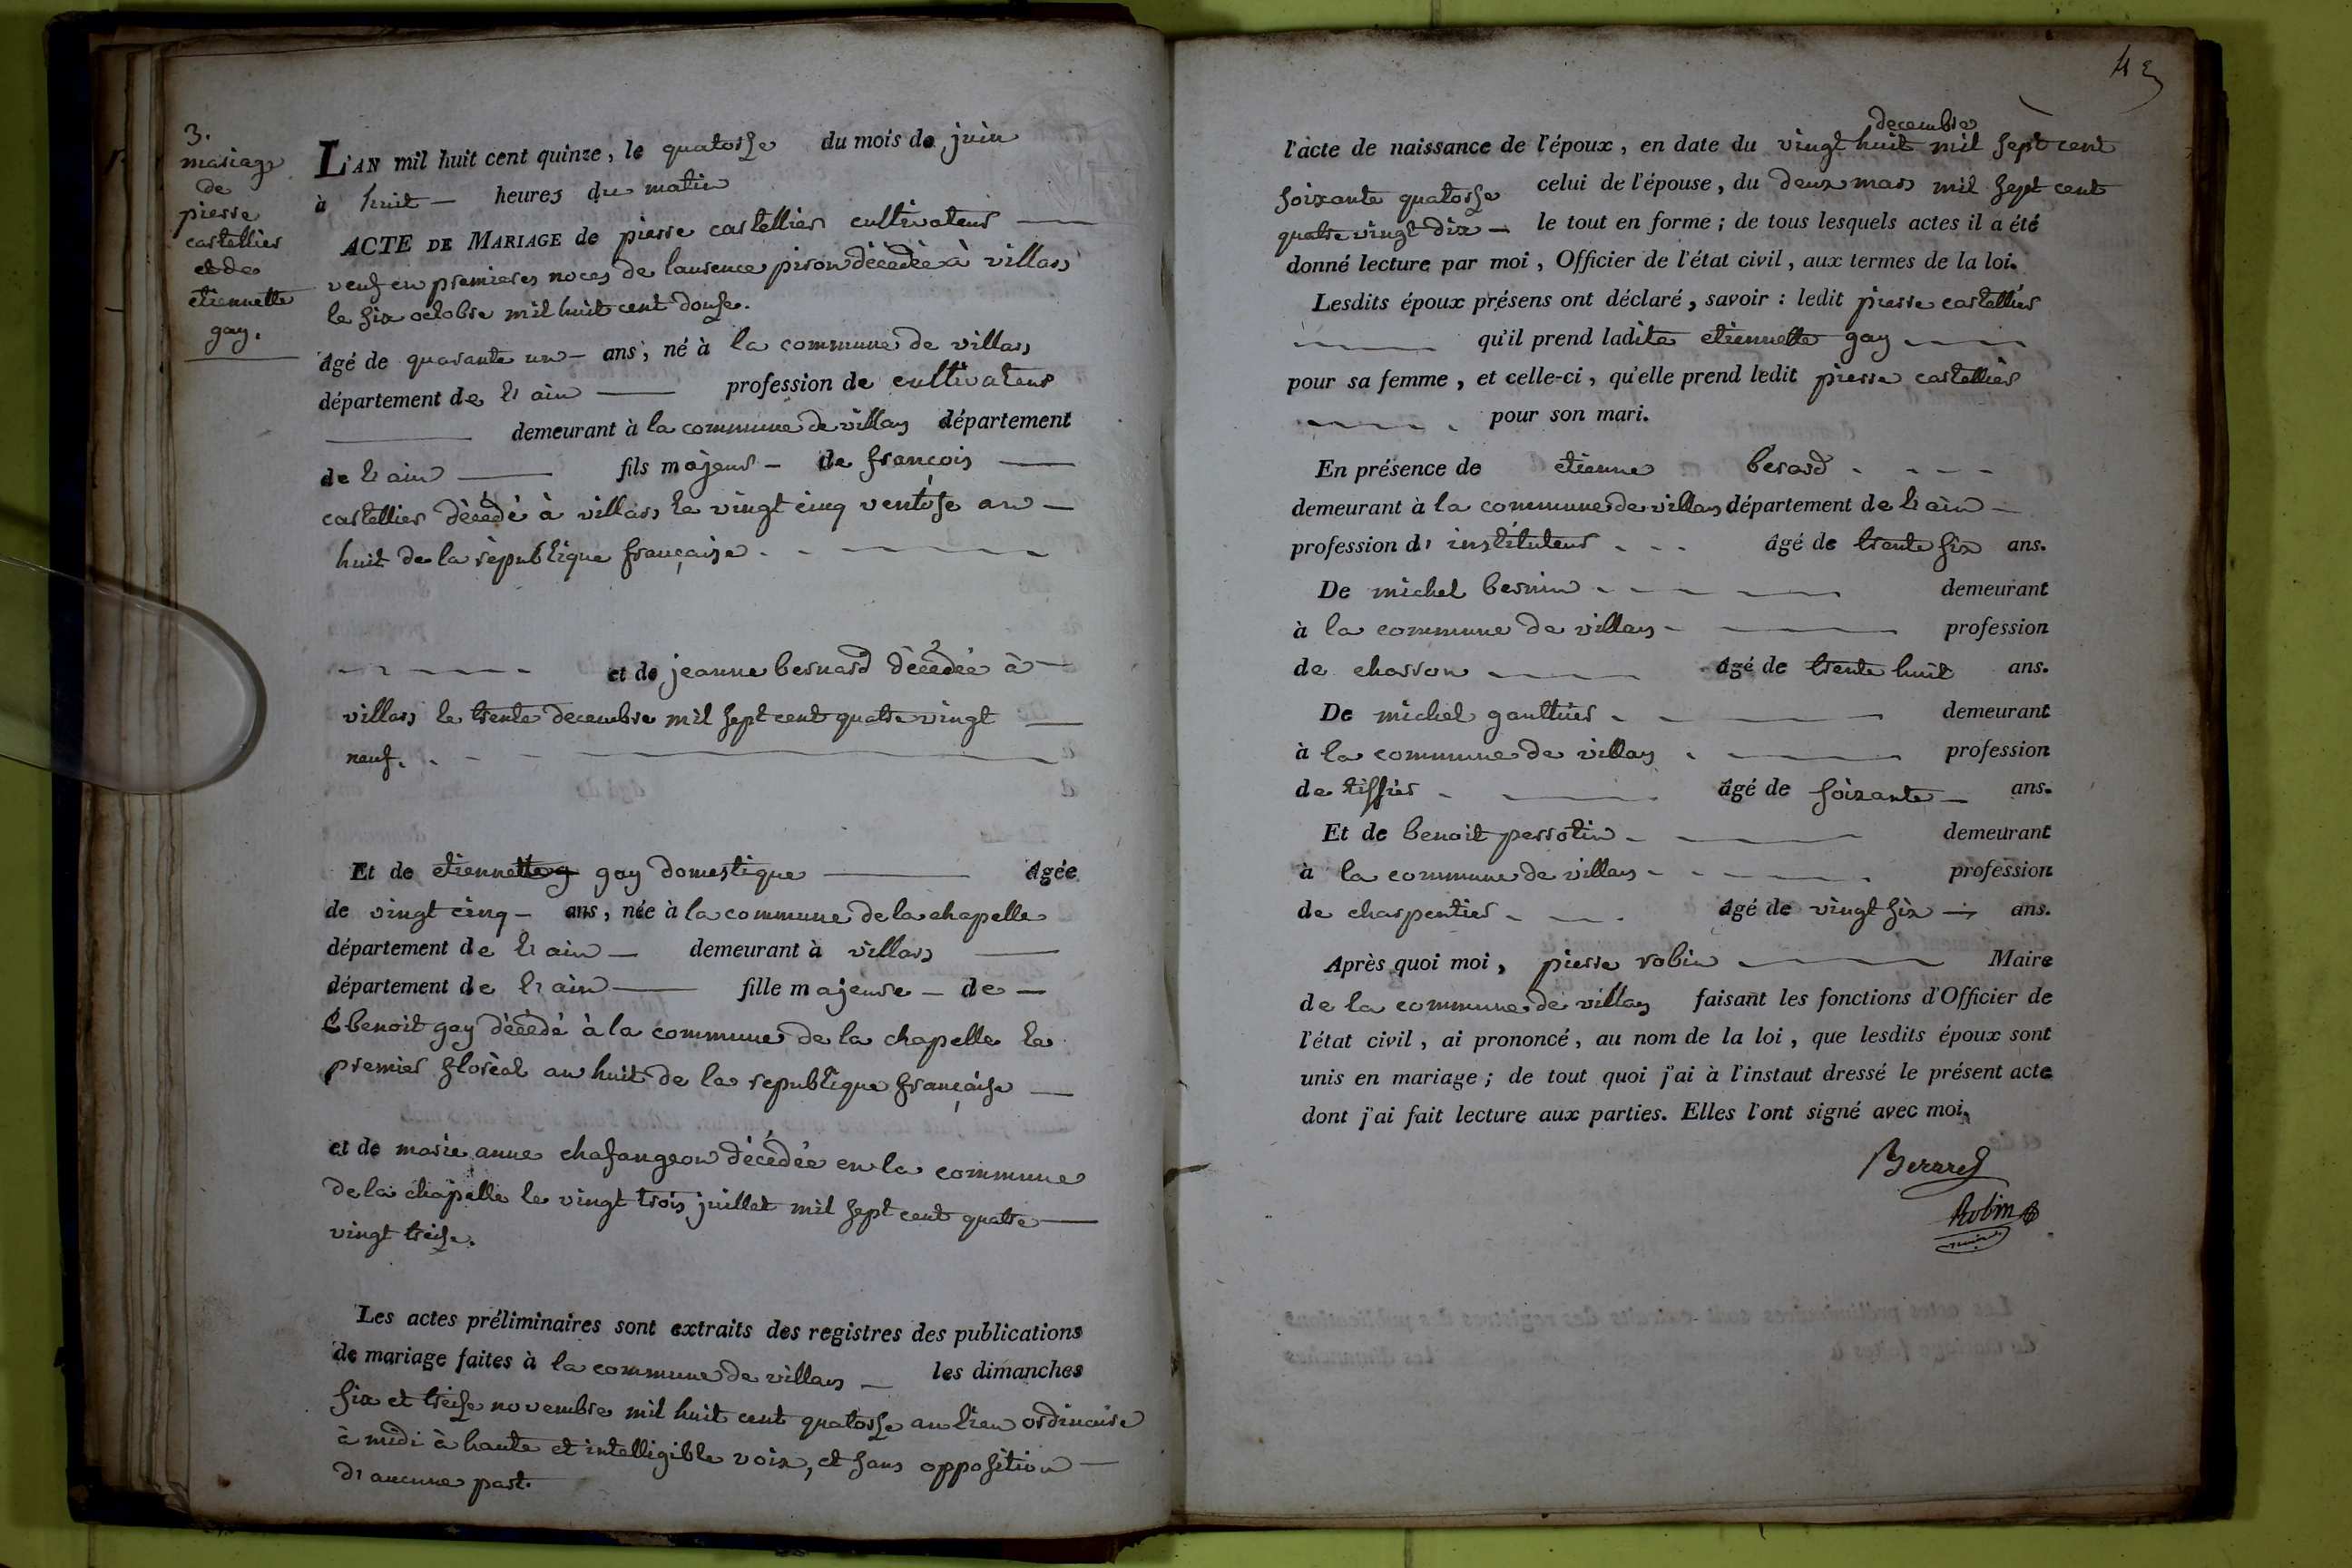 3.
mariage
de
pierre
castellier
et de
etiennette
gay.
L'AN mil huit cent quinze, le quatorse du mois de juin
à huit — heures du matin
ACTE DE MARIAGE de pierre castellier cultivateur —
veuf en premieres noces de laurence piron décédée à villars
le six octobre mil huit cent douse.
âgé de quarante un — ans, né à la commune de villars
département de l'ain — profession de cultivateur
— demeurant à la commune de villars département
de l'ain — fils majeur — de françois —
castellier décédé à villars le vingt cinq ventôse an —
huit de la république française. —
— et de jeanne bernard décédée à —
villars le trente decembre mil sept cent quatre vingt —
neuf. —
Et de etiennette gay domestique — âgée
de vingt cinq — ans, née à la commune de la chapelle
département de l'ain — demeurant à villars —
département de l'ain — fille majeure — de —
benoit gay décédé à la commune de la chapelle le
premier floréal an huit de la republique française —
et de marie anne chafangeon décédée en la commune
de la chapelle le vingt trois juillet mil sept cent quatre —
vingt treise.
Les actes préliminaires sont extraits des registres des publications
de mariage faites à la commune de villars — les dimanches
six et treise novembre mil huit cent quatorse au lieu ordinaire
à midi à haute et intelligible voix, et sans opposition —
d'aucune part.
43
decembre
l'acte de naissance de l'époux, en date du vingt huit mil sept cent
soixante quatorse celui de l'épouse, du deux mars mil sept cent
quatre vingt dix — le tout en forme; de tous lesquels actes il a été
donné lecture par moi, Officier de l'état civil, aux termes de la loi.
Lesdits époux présens ont déclaré, savoir : ledit pierre castellier
— qu'il prend ladite etiennette gay —
pour sa femme, et celle-ci, qu'elle prend ledit pierre castellier
— pour son mari.
En présence de etienne berard —
demeurant à la commune de villars département de l'ain —
profession d' instituteur — âgé de trente six ans.
De michel bernin — demeurant
à la commune de villars — profession
de charron — âgé de trente huit ans.
De michel gauthier — demeurant
à la commune de villars — profession
de tissier — âgé de soixante — ans.
Et de benoit perrotin — demeurant
à la commune de villars — profession
de charpentier — âgé de vingt six — ans.
Après quoi moi, pierre robin — Maire
de la commune de villars faisant les fonctions d'Officier de
l'état civil, ai prononcé, au nom de la loi, que lesdits époux sont
unis en mariage; de tout quoi j'ai à l'instaut dressé le présent acte
dont j'ai fait lecture aux parties. Elles l'ont signé avec moi.
Berard
Robin